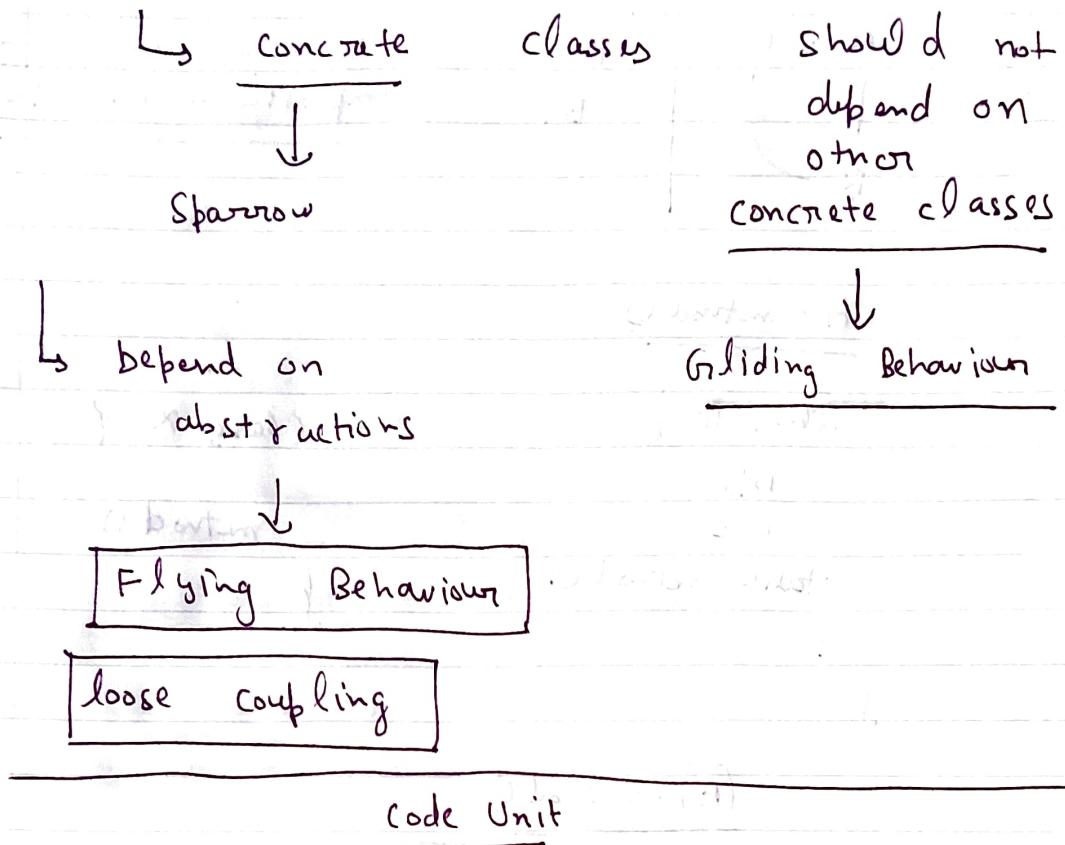 ↳ concrete classes should not
depend on
other
concrete classes
↓
Sparrow
↓
Gliding Behaviour
↳ Depend on
abstractions
↓
Flying Behaviour
loose coupling
Code Unit